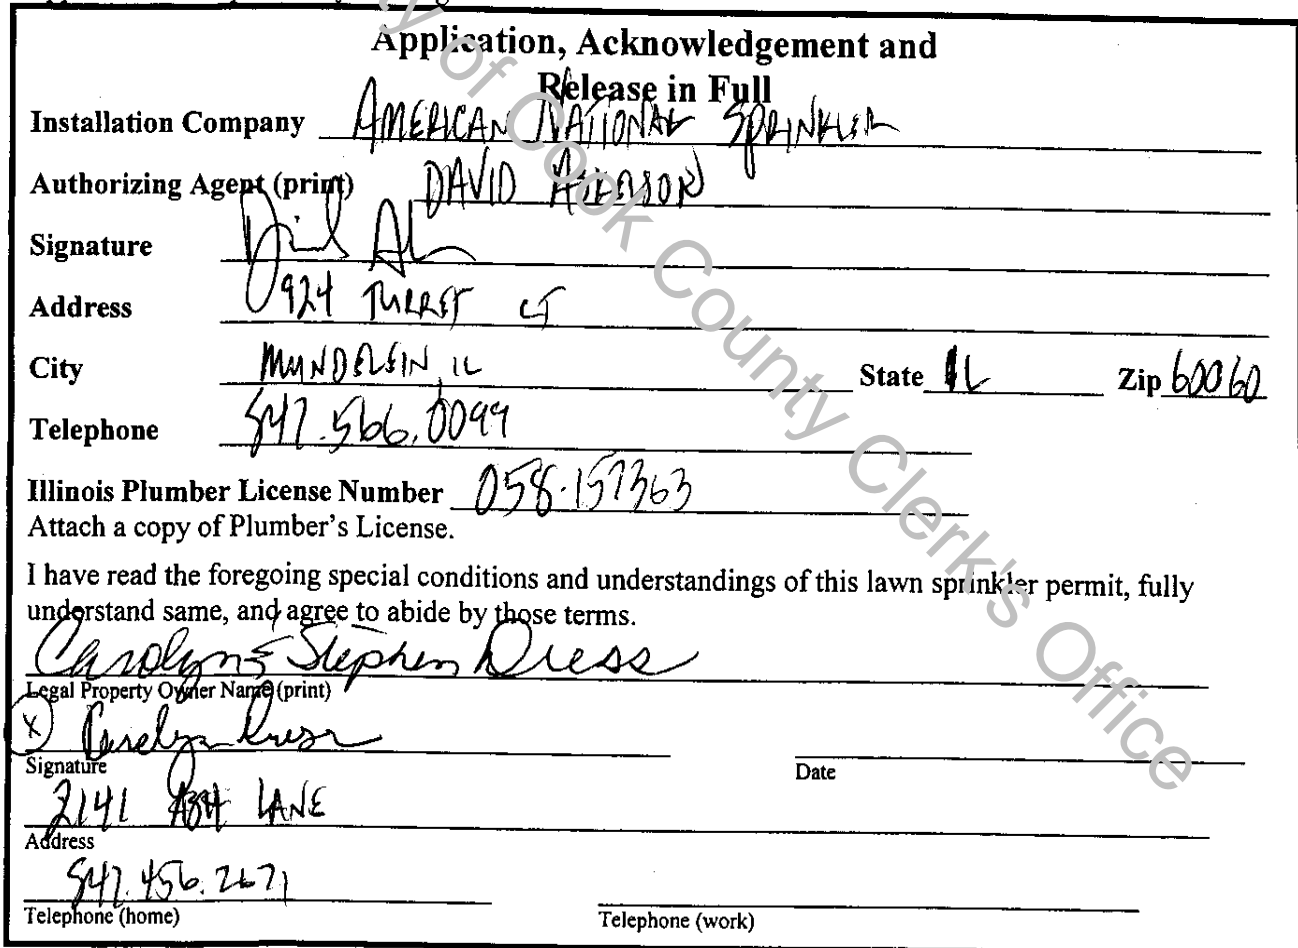 Application, Acknowledgement and
Release in Full
Installation Company AMERICAN NATIONAL SPRINKLER
Authorizing Agent (print) DAVID
Signature
Address 924 TURRET CT
City MUNDELEIN, IL State IL Zip 60060
Telephone 847.566.0099
Illinois Plumber License Number 058-157363
Attach a copy of Plumber's License.
I have read the foregoing special conditions and understandings of this lawn sprinkler permit, fully
understand same, and agree to abide by those terms.
Carolyn & Stephen Dress
Legal Property Owner Name (print)
X Carolyn Dress
Signature Date
2141 ASH LANE
Address
847.456.2671
Telephone (home) Telephone (work)
y of Cook County Clerk's Office